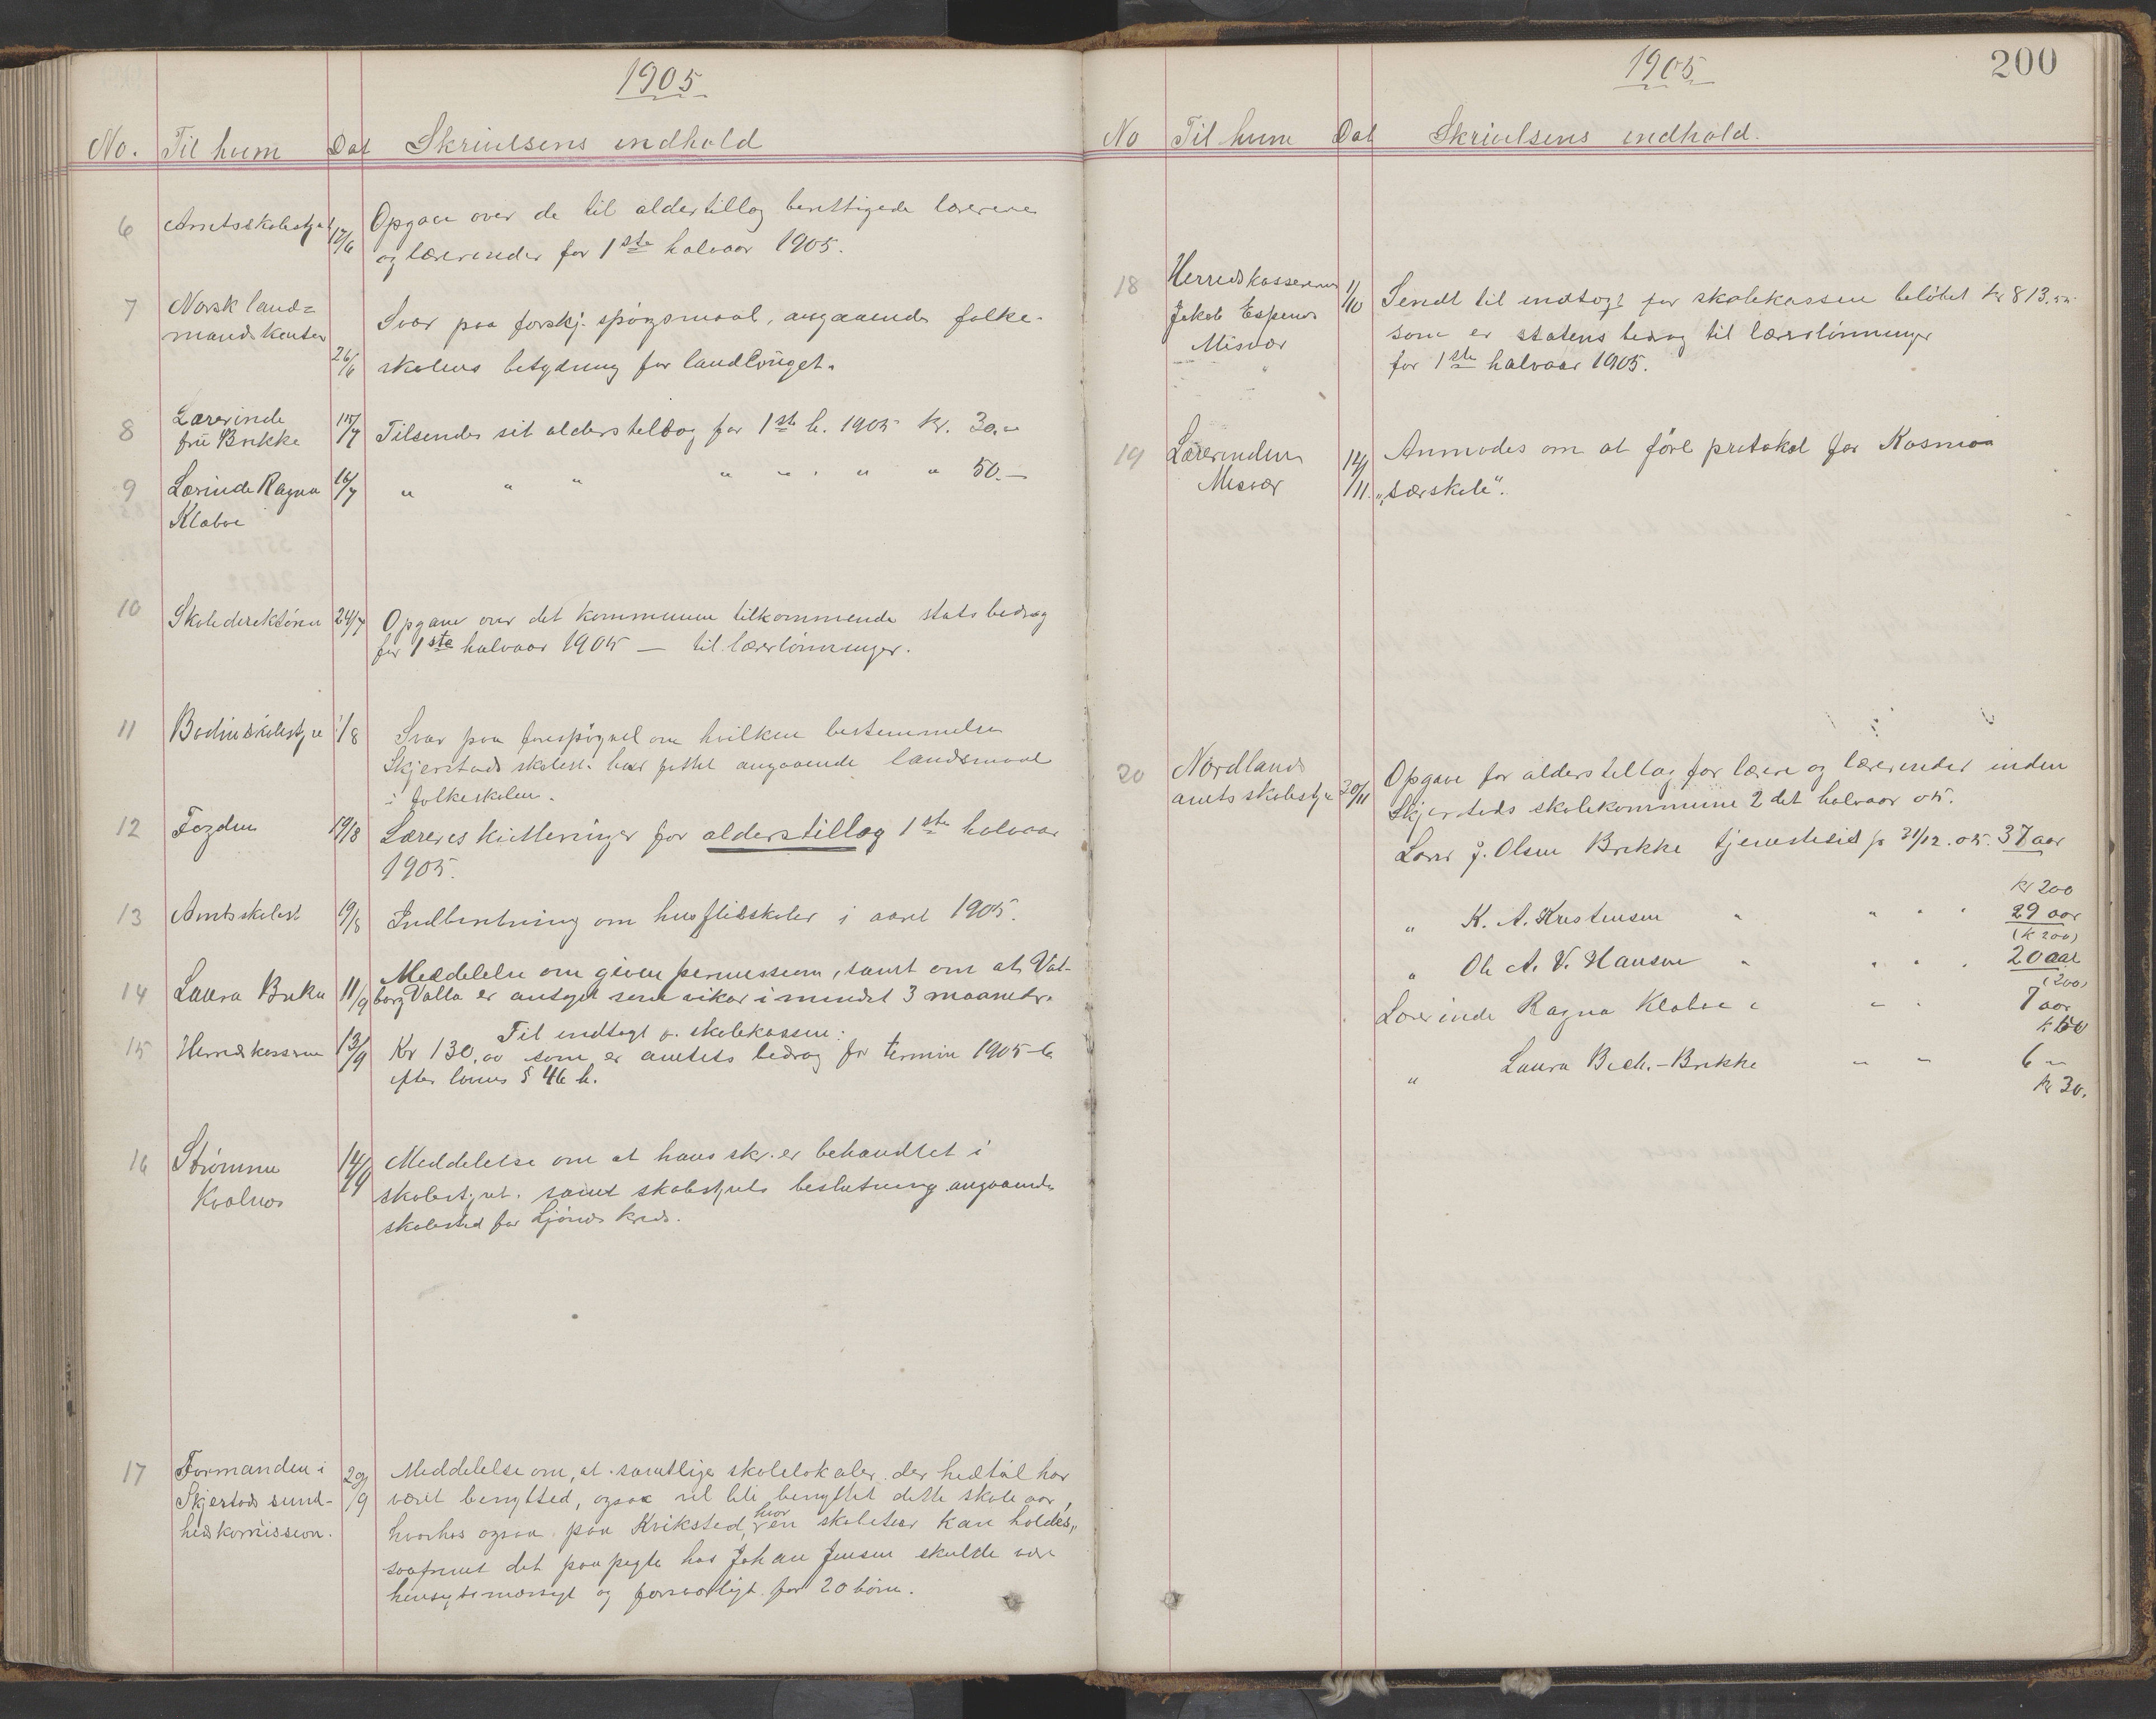 1905
No. Til hvem Dat Skrivelsens indhold
6 Amtsskolestyret 17/6 Opgave over de til alderstillæg berettigede lærere
og lærerinder for 1ste halvaar 1905.
7 Norsk land=
mands kontor 26/6 Svar paa forskj. spörgsmaal, angaaende folke-
skolens betydning for landbruget.
8 Lærerinde
fru Brekke 15/7 Tilsendes sit alderstillæg for 1ste h. 1905 Kr. 30.-
9 Lærinde Ragna 16/7 " " " " " " " 50.-
Klæboe
10 Skoledirektören 24/7 Opgave over det kommunen tilkommende statsbedrag
for 1ste halvaar 1905 — til lærerlönninger.
11 Bodin skolestyre 1/8 Svar paa forespörgsel om hvilken bestemmelse
Skjerstads skolest. har fattet angaaende landsmaal
i folkeskolen.
12 Fogden 19/8 Læreres kvitteringer for alderstillæg 1ste halvaar
1905.
13 Amtsskolest 19/8 Indberetning om husflidskoler i aaret 1905.
14 Laura Brekke 11/9 Meddelelse om given permission, samt om at Val-
borg Valla er antaget som vikar i mindst 3 maaneder.
15 Herredskasseren 13/9 Til indtægt v. skolekassen:
Kr 130,00 som er amtets bedrag for termin 1905-6
efter lovens § 46 h.
16 Strömmen
Kvalnes 14/9 Meddelelse om at hans skr. er behandlet i
skolestyret. samt skolestyrets beslutning angaaende
skolested for Ljönes kreds.
17 Formanden i
Skjerstads sund-
hedskomission. 29/9 Meddelelse om, at samtlige skolelokaler der hidtil har
været benytted, ogsaa vil bli benyttet dette skoleaar,
hvorhos ogsaa paa Kvikstad, hvor en skolestue kan holdes,
saafremt det paapegte hos Johan Jensen skulde være
hensigtsmæssigt og forsvarligt for 20 börn.
1905 200
No Til hvem Dat Skrivelsens indhold.
18 Herredskasseren
Jakob Espenes
Misvær 1/10 Sendt til indtægt for skolekassen belöbet kr 813.
som er statens bedrag til lærerlönninger
for 1ste halvaar 1905.
19 Lærerinden
Misvær 14/11. Anmodes om at före protokol for Kosmoa
"særskole".
20 Nordlands
amtsskolestyre 20/11 Opgave for alderstillæg for lærere og lærerinder inden
Skjerstads skolekommune 2det halvaar 05.
Lærer J. Olsen Brekke tjenestetid pr 31/12. 05. 37 aar
Kr 200
" K. A. Kristensen " " " " 29 aar
(K 200)
" Ole A. V. Hansen " " " " 20 aar
(200)
Lærerinde Ragna Klæboe " " " 7 aar
k 50
" Laura Bech.-Brekke " " 6 "
Kr 30.